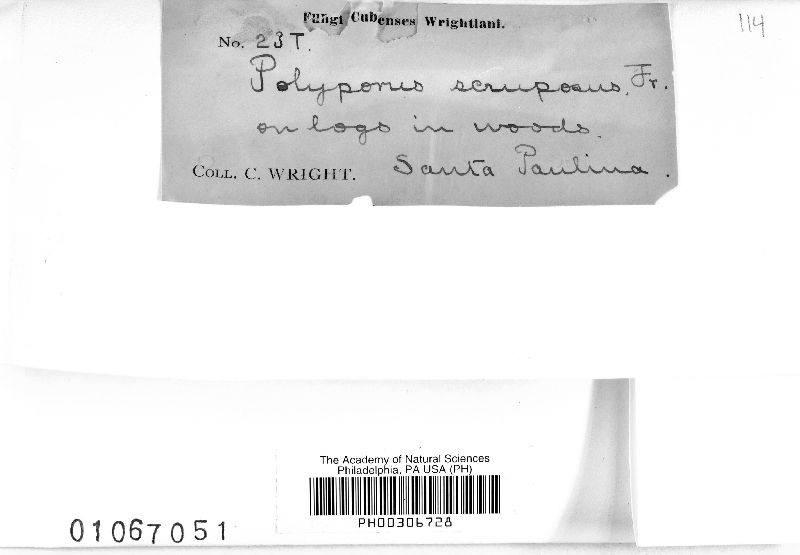 Fungi Cubenses Wrightiani.
114
No. 237.
Polyporus scruposus, Fr.
on logs in woods.
Coll. C. WRIGHT. Santa Paulina.
The Academy of Natural Sciences
Philadelphia, PA USA (PH)
PH00306728
01067051